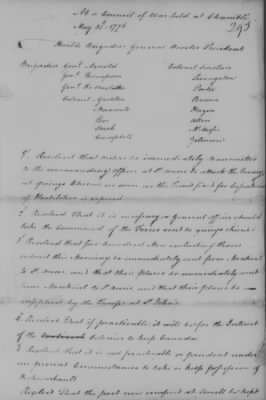 At a Council of War held at Chamblé
May 30th 1776
293
Present Brigadier General Wooster President
Brigadier Genl. Arnold
Genl. Thompson
Genl. De Woedtke
Colonel Greaton
Maxwell
Poor
Stark
Campbell
Colonel Sinclair
Livingston
Porter
Brown
Hazen
Allen
Antill
1. Resolved that orders be immediately transmitted
to the commanding officer at St. Anns to attack the Enemy
at quinze Chiens, as soon as the Time fixed for Expiration
of Hostilities is expired
2. Resolved That it is necessary a General officer should
take the Command of the Forces sent to quinze Chiens
3. Resolved that five hundred Men including those
ordered this Morning be immediately sent from Montreal
to St. Anns, and that their places be immediately sent
from Montreal to St. Anns and that their places be
supplied by the Troops at St. John's
4. Resolved That if practicable it will be for the Interest
of the Colonies to keep Canada
5. Resolved that it is not practicable or prudent under
our present Circumstances to take or keep possession of
Resolved That the post now occupied at Sorrell be kept